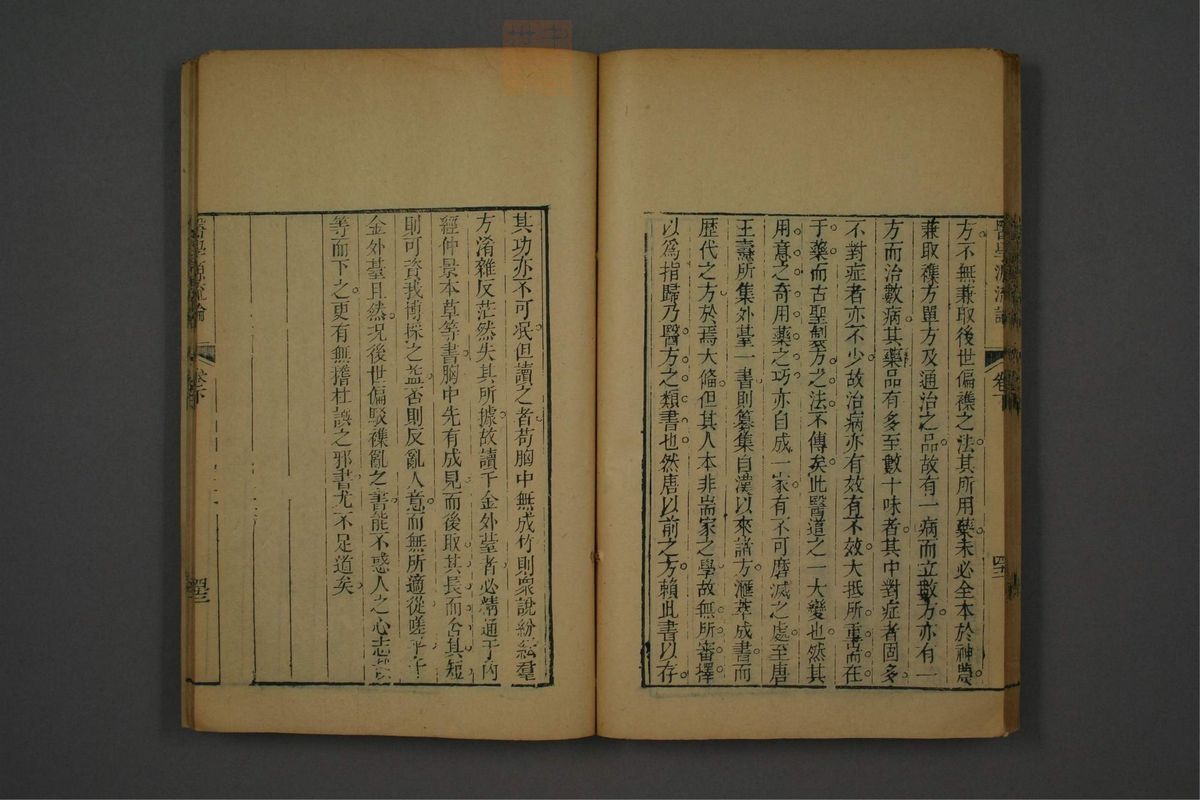 醫學源流論 卷下 四十二
方不無兼取後世偏襍之法其所用藥未必全本於神農
兼取襍方單方及通治之品故有一病而立數方亦有一
方而治數病其藥品有多至數十味者其中對症者固多
不對症者亦不少故治病亦有效有不效大抵所重耑在
于藥而古聖製方之法不傳矣此醫道之一大變也然其
用意之奇用藥之巧亦自成一家有不可磨滅之處至唐
王燾所集外臺一書則纂集自漢以來諸方滙萃成書而
歷代之方於焉大備但其人本非耑家之學故無所審擇
以爲指歸乃醫方之類書也然唐以前之方賴此書以存
其功亦不可泯但讀之者苟胸中無成竹則衆說紛紜羣
方淆雜反茫然失其所據故讀千金外臺者必精通于內
經仲景本草等書胸中先有成見而後取其長而舍其短
則可資我博採之益否則反亂人意而無所適從嗟乎千
金外臺且然况後世偏駁襍亂之書能不惑人之心志哉
等而下之更有無稽杜譔之邪書尤不足道矣
醫學源流論 卷下